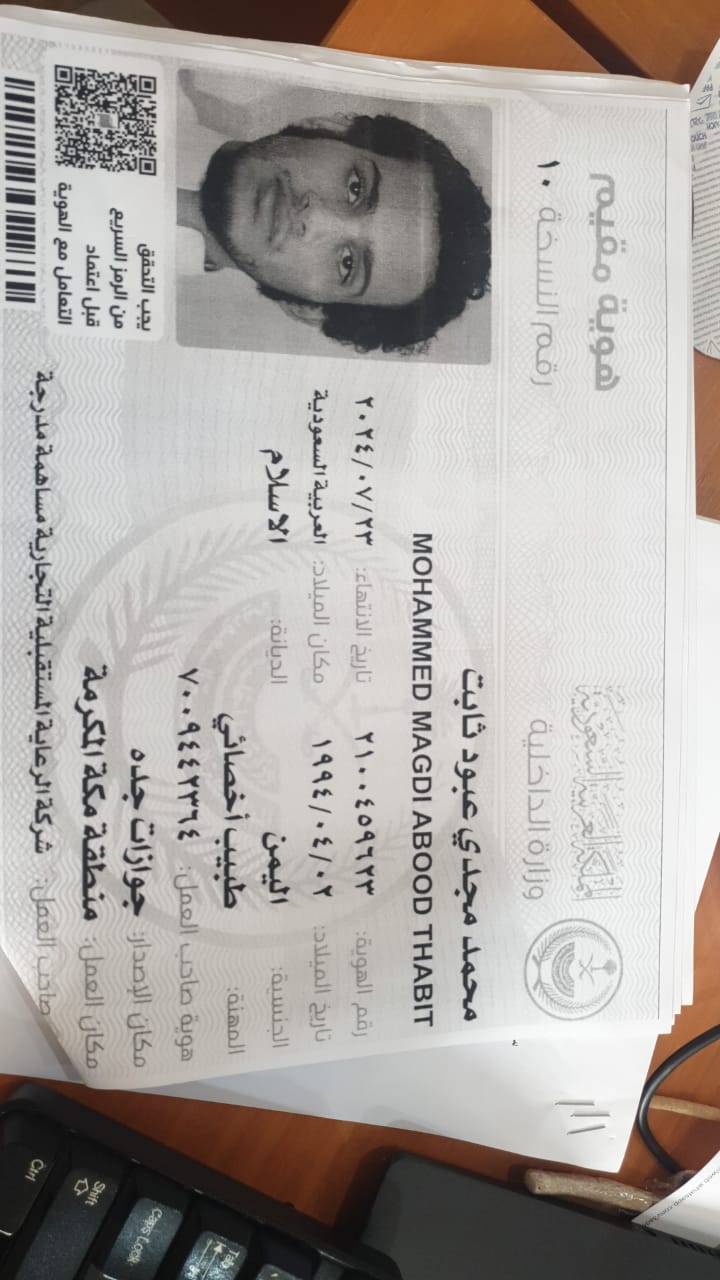 المملكة العربية السعودية
وزارة الداخلية
هوية مقيم
رقم النسخة ١٠
محمد مجدي عبود ثابت
MOHAMMED MAGDI ABOOD THABIT
رقم الهوية: ٢١٠٠٤٥٩٦٢٣ تاريخ الانتهاء: ٢٠٢٤/٠٧/٢٣
تاريخ الميلاد: ١٩٩٤/٠٤/٠٢ مكان الميلاد: العربية السعودية
الجنسية: اليمن الديانة: الاسلام
المهنة: طبيب أخصائي
هوية صاحب العمل: ٧٠٠٩٤٤٢٣٦٤
مكان الإصدار: جوازات جده
مكان العمل: منطقة مكة المكرمة
صاحب العمل: شركة الرعاية المستقبلية التجارية مساهمة مدرجة
يجب التحقق
من الرمز السريع
قبل اعتماد
التعامل مع الهوية
Ctrl
Shift
Caps Lock
Tab